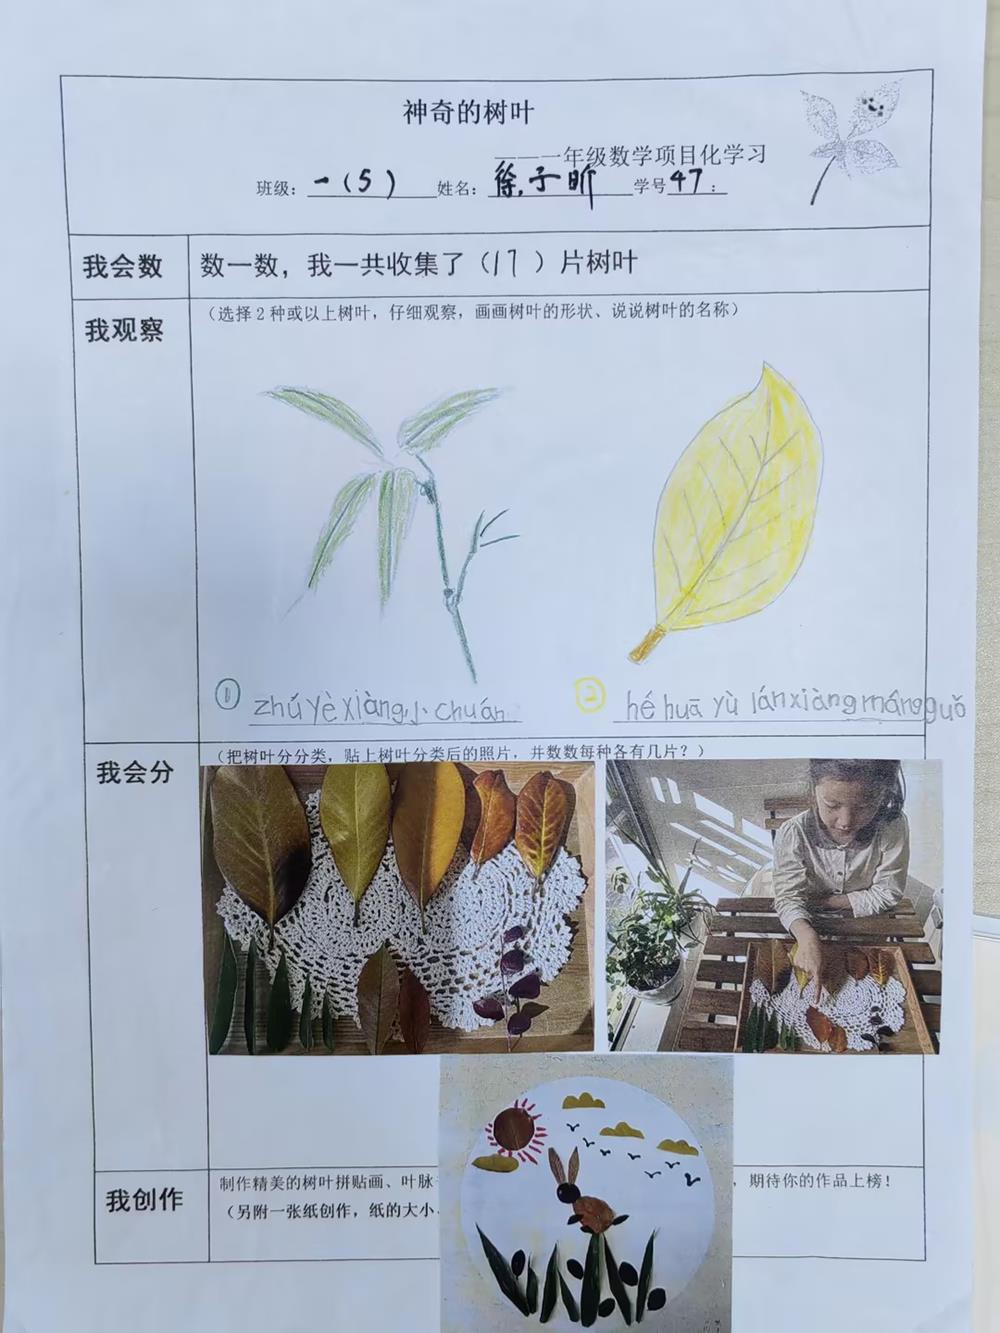 神奇的树叶
——一年级数学项目化学习
班级：一（5） 姓名：徐子昕 学号47：
我会数 数一数，我一共收集了（17）片树叶
我观察 （选择2种或以上树叶，仔细观察，画画树叶的形状、说说树叶的名称）
① zhú yè xiàng 小 chuán
② hé huā yù lán xiàng máng guǒ
我会分 （把树叶分分类，贴上树叶分类后的照片，并数数每种各有几片？）
我创作 制作精美的树叶拼贴画、叶脉 ，期待你的作品上榜！
（另附一张纸创作，纸的大小